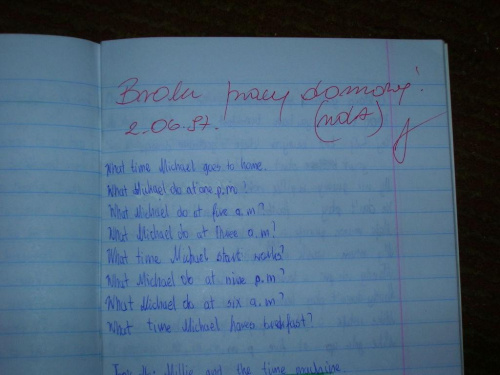 Brak pracy domowej!
2.06.97. (ndst)
What time Michael goes to home.
What Michael do at one p.m?
What Michael do at five a.m?
What Michael do at three a.m?
What time Michael start works?
What Michael do at nine p.m?
What Michael do at six a.m?
What time Michael haves breakfast?
Millie and the time machine.